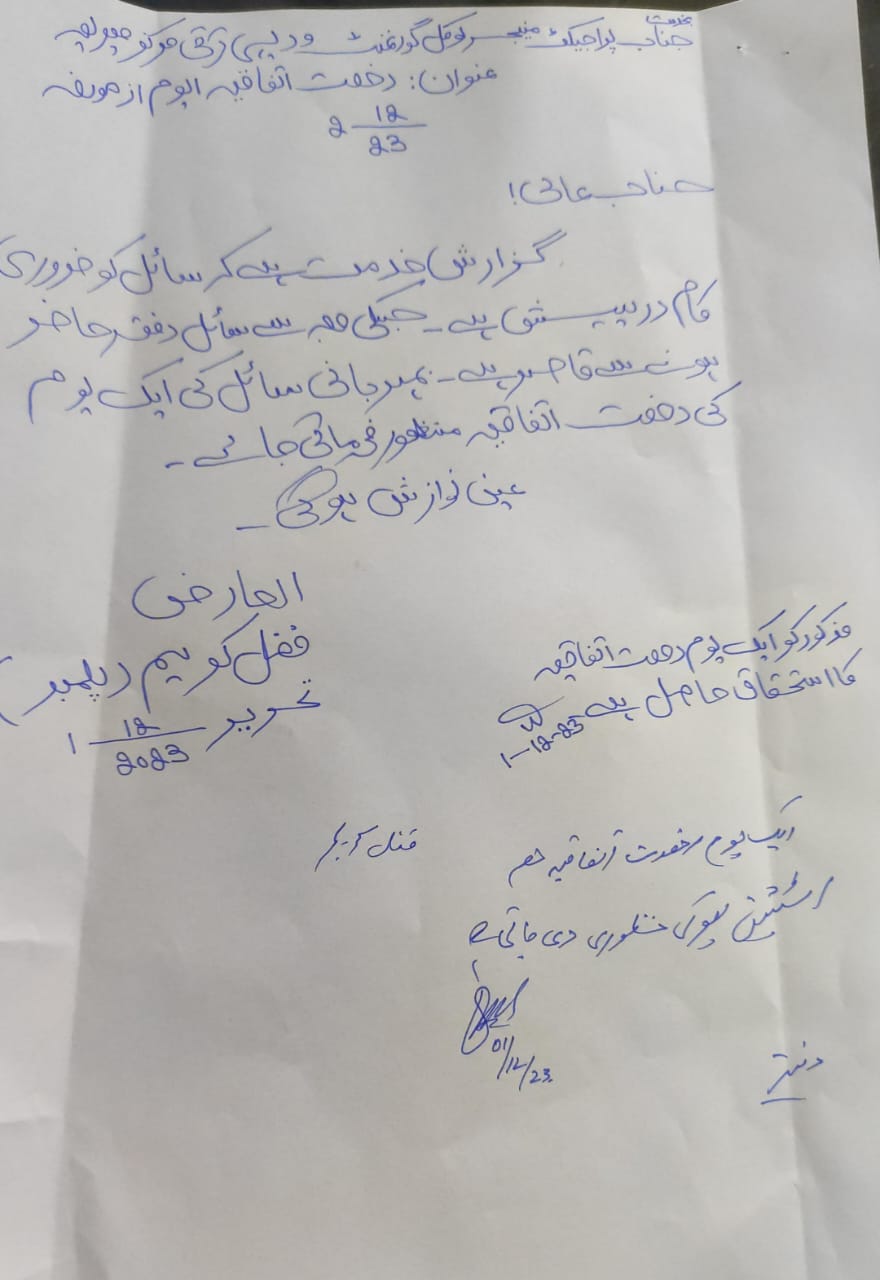 بخدمت
جناب پراجیکٹ منیجر لوکل گورنمنٹ و دیہی ترقی مرکز
عنوان: رخصت اتفاقیہ ایوم از مورخہ
2 12/23
جناب عالی!
گزارش خدمت ہے کہ سائل کو ضروری
کام درپیش ہے۔ جسکی وجہ سے سائل دفتر حاضر
ہونے سے قاصر ہے۔ بمہربانی سائل کی ایک یوم
کی رخصت اتفاقیہ منظور فرمائی جائے۔
عین نوازش ہوگی۔
العارض
فضل کریم (پلمبر)
تحریر 1 12/2023
مذکور کو ایک یوم رخصت اتفاقیہ
کا استحقاق حاصل ہے۔
1-12-23
فضل کریم
ایک یوم رخصت اتفاقیہ معہ
اسٹیشن لیو کی منظوری دی جاتی ہے
01/12/23.
دفتر